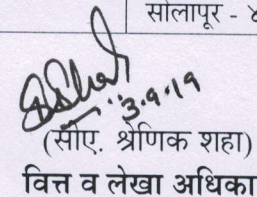 सोलापूर -
3.9.19
(सीए. श्रेणिक शहा)
वित्त व लेखा अधिका